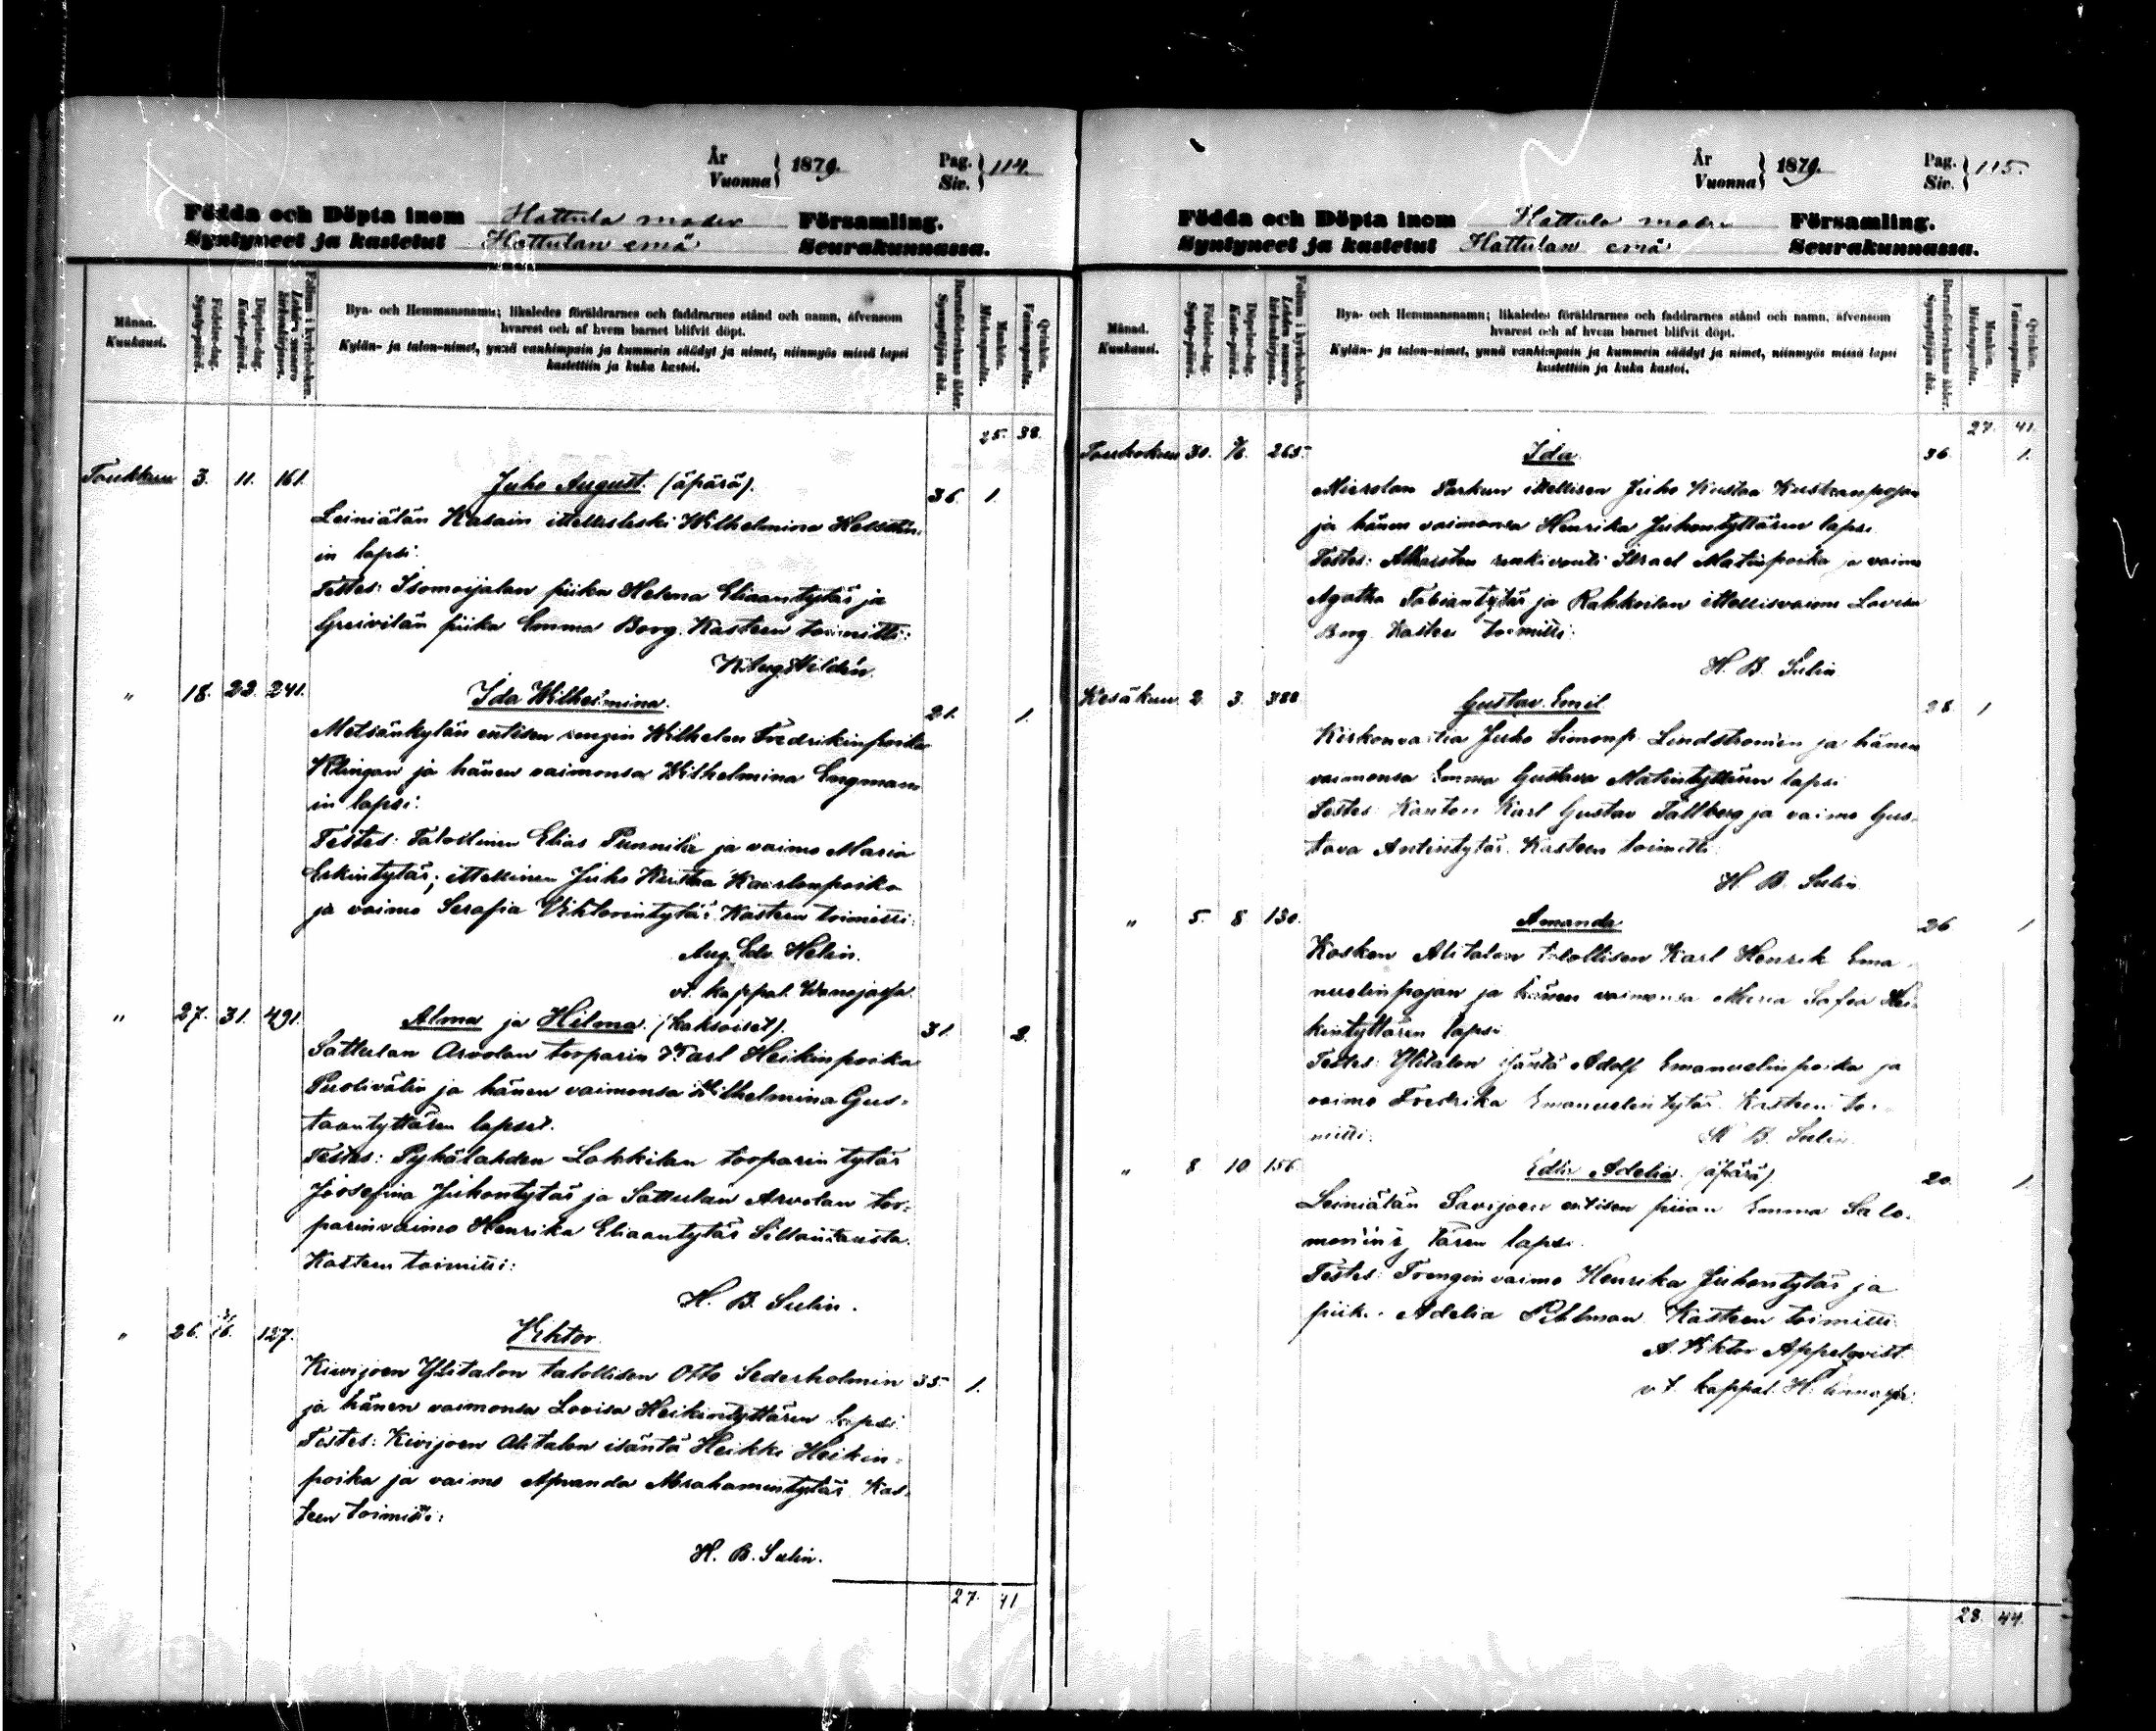 År
Vuonna } 1879.
Pag.
Siv. } 114.
Födda och Döpta inom Hattula moder Församling.
Syntyneet ja kastetut Hattulan emä Seurakunnassa.
Månad.
Kuukausi.
Födelse-dag.
Synty-päivä.
Döpelse-dag.
Kaste-päivä.
Folium i kyrkoboken.
Lehden numero kirkonkirjassa.
Bya- och Hemmansnamn; likaledes föräldrarnes och faddrarnes stånd och namn, äfvensom
hvarest och af hvem barnet blifvit döpt.
Kylän- ja talon-nimet, ynnä vanhimpain ja kummein säädyt ja nimet, niinmyös missä lapsi
kastettiin ja kuka kastoi.
Barnaföderskans ålder.
Synnyttäjän ikä.
Mankön.
Miehenpuolta.
Qvinkön.
Vaimonpuolta.
25. 38.
Toukkuu 3. 11. 161. Juho August. (äpärä). 36 1.
Leiniälän Kasain ittellisleski Wilhelmina
in lapsi.
Testes: Isomoijalan piika Helena Eliaantytär ja
Greivilän piika Emma Borg. Kasteen toimitti:
K. Aug. Hildén.
" 18. 23. 241. Ida Wilhelmina. 21. 1.
Metsänkylän entisen rengin Wilhelm Fredrikinpoika
Klingan ja hänen vaimonsa Wilhelmina Engman
in lapsi.
Testes: Talollinen Elias Punnila ja vaimo Maria
Erkintytär; ittellinen Juho Kustaa Kaarlonpoika
ja vaimo Serafia Vihtorintytär. Kasteen toimitti:
Aug. Edv. Helin.
vt. kappal. Wanajassa.
" 27. 31. 491. Alma ja Hilma. (kaksoiset). 31. 2.
Sattulan Arvolan tooparin Karl Heikinpoika
Puolivälin ja hänen vaimonsa Wilhelmina Gus-
taantyttären lapset.
Testes: Pyhälahden Lahkilan tooparin tytär
Joosefina Juhontytär ja Sattulan Arvolan too-
parinvaimo Henrika Eliaantytär Sillantausta.
Kasteen toimitti:
H. B. Sulin.
" 26. 3/6. 127. Vihtor.
Kiwijoen Ylitalon talollisen Otto Sederholmin 35. 1.
ja hänen vaimonsa Lovisa Heikintyttären lapsi.
Testes: Kivijoen Alitalon isäntä Heikki Heikin-
poika ja vaimo Amanda Abrahamintytär. Kas-
teen toimitti:
H. B. Sulin.
27. 41
År
Vuonna } 1879.
Pag.
Siv. } 115.
Födda och Döpta inom Hattula moder Församling.
Syntyneet ja kastetut Hattulan emä Seurakunnassa.
Månad.
Kuukausi.
Födelse-dag.
Synty-päivä.
Döpelse-dag.
Kaste-päivä.
Folium i kyrkoboken.
Lehden numero kirkonkirjassa.
Bya- och Hemmansnamn; likaledes föräldrarnes och faddrarnes stånd och namn, äfvensom
hvarest och af hvem barnet blifvit döpt.
Kylän- ja talon-nimet, ynnä vanhimpain ja kummein säädyt ja nimet, niinmyös missä lapsi
kastettiin ja kuka kastoi.
Barnaföderskans ålder.
Synnyttäjän ikä.
Mankön.
Miehenpuolta.
Qvinkön.
Vaimonpuolta.
27. 41.
Toukokuu 30. 265. Ida 36. 1.
Mierolan Parkun ittellisen Juho Kustaa Kustaanpojan
ja hänen vaimonsa Henrika Juhontyttären lapsi.
Testes: Alhaisten Israel Matinpoika ja vaimo
Agatha Fabiantytär ja Rahkoilan ittellisvaimo Lovisa
Borg. Kasteen toimitti:
H. B. Sulin
Kesäkuu 2. 3. 388 Gustav Emil 28. 1
Kirkonvartia Juho Simonp. Lindströmin ja hänen
vaimonsa Emma Gustava Matintyttären lapsi
Testes: Kanttori Karl Gustav Tallberg ja vaimo Gus-
tava Antintytär. Kasteen toimitti:
H. B. Sulin.
" 5. 8 130. Amanda 26 1
Kosken Alitalon talollisen Karl Henrik Ema-
nuelinpojan ja hänen vaimonsa Maria Sofia Hei-
kintyttären lapsi
Testes: Ylitalon isäntä Adolf Emanuelinpoika ja
vaimo Fredrika Emanuelintytär. Kasteen toi-
mitti: H. B. Sulin.
" 8 10 156 Edla Adelia. (äpärä) 20. 1.
Leiniälän Savijoen entisen piian Emma Salo-
monin lapsi.
Testes: Trengin vaimo Henrika Juhontytär ja
piika Adelia Pihlman. Kasteen toimitti
A. Viktor Appelqvist.
vt. kappal.
28. 44.